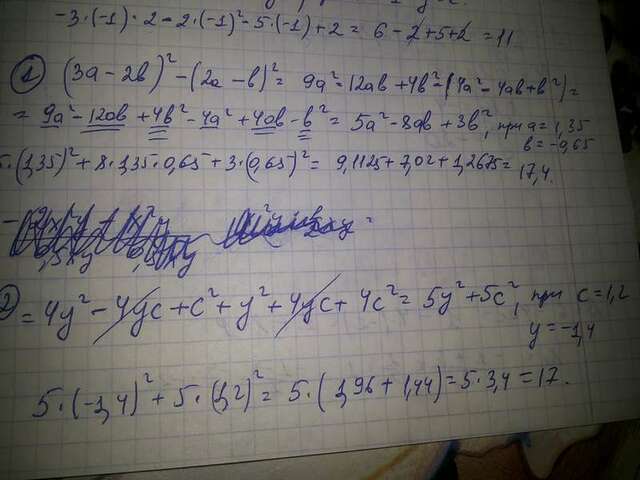 -3·(-1)·2 - 2·(-1)² - 5·(-1) + 2 = 6 - 2 + 5 + 2 = 11
① (3a - 2b)² - (2a - b)² = 9a² - 12ab + 4b² - (4a² - 4ab + b²) =
= 9a² - 12ab + 4b² - 4a² + 4ab - b² = 5a² - 8ab + 3b², при a = 1,35
b = -0,65
5·(1,35)² + 8·1,35·0,65 + 3·(0,65)² = 9,1125 + 7,02 + 1,2675 =
17,4.
2) = 4y² - 4yc + c² + y² + 4yc + 4c² = 5y² + 5c², при c = 1,2
y = -1,4
5·(-1,4)² + 5·(1,2)² = 5·(1,96 + 1,44) = 5·3,4 = 17.